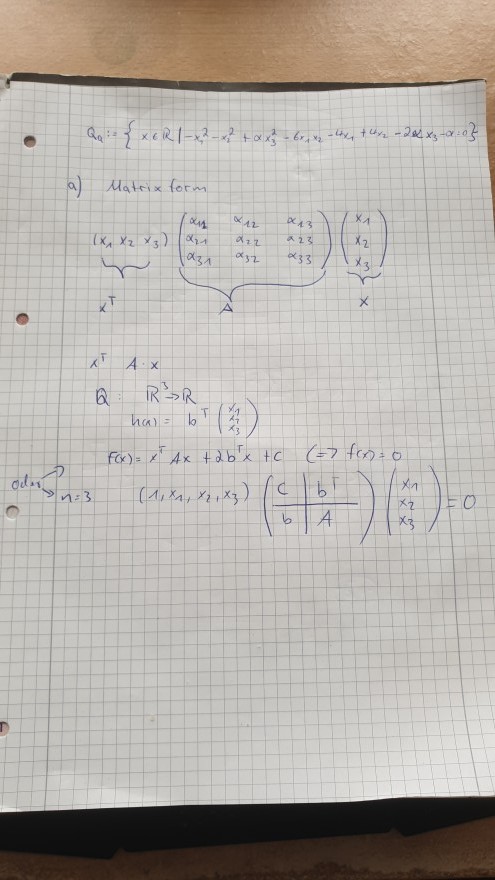 Qα := { x ∈ ℝ | -x₁² - x₂² + αx₃² - 6x₁x₂ - 4x₁ + 4x₂ - 2αx₃ - α = 0 }
a) Matrix form
(x₁ x₂ x₃) ( α₁₁ α₁₂ α₁₃ ) ( x₁ )
α₂₁ α₂₂ α₂₃ x₂
α₃₁ α₃₂ α₃₃ x₃
xᵀ A x
xᵀ A · x
Q : ℝ³ → ℝ
h(x) = bᵀ ( x₁ x₂ x₃ )
F(x) = xᵀ A x + 2bᵀx + c (=> f(x) = 0
oder
n=3 (1, x₁, x₂, x₃) ( C | bᵀ ) ( x₁ ) = 0
b | A x₂
x₃